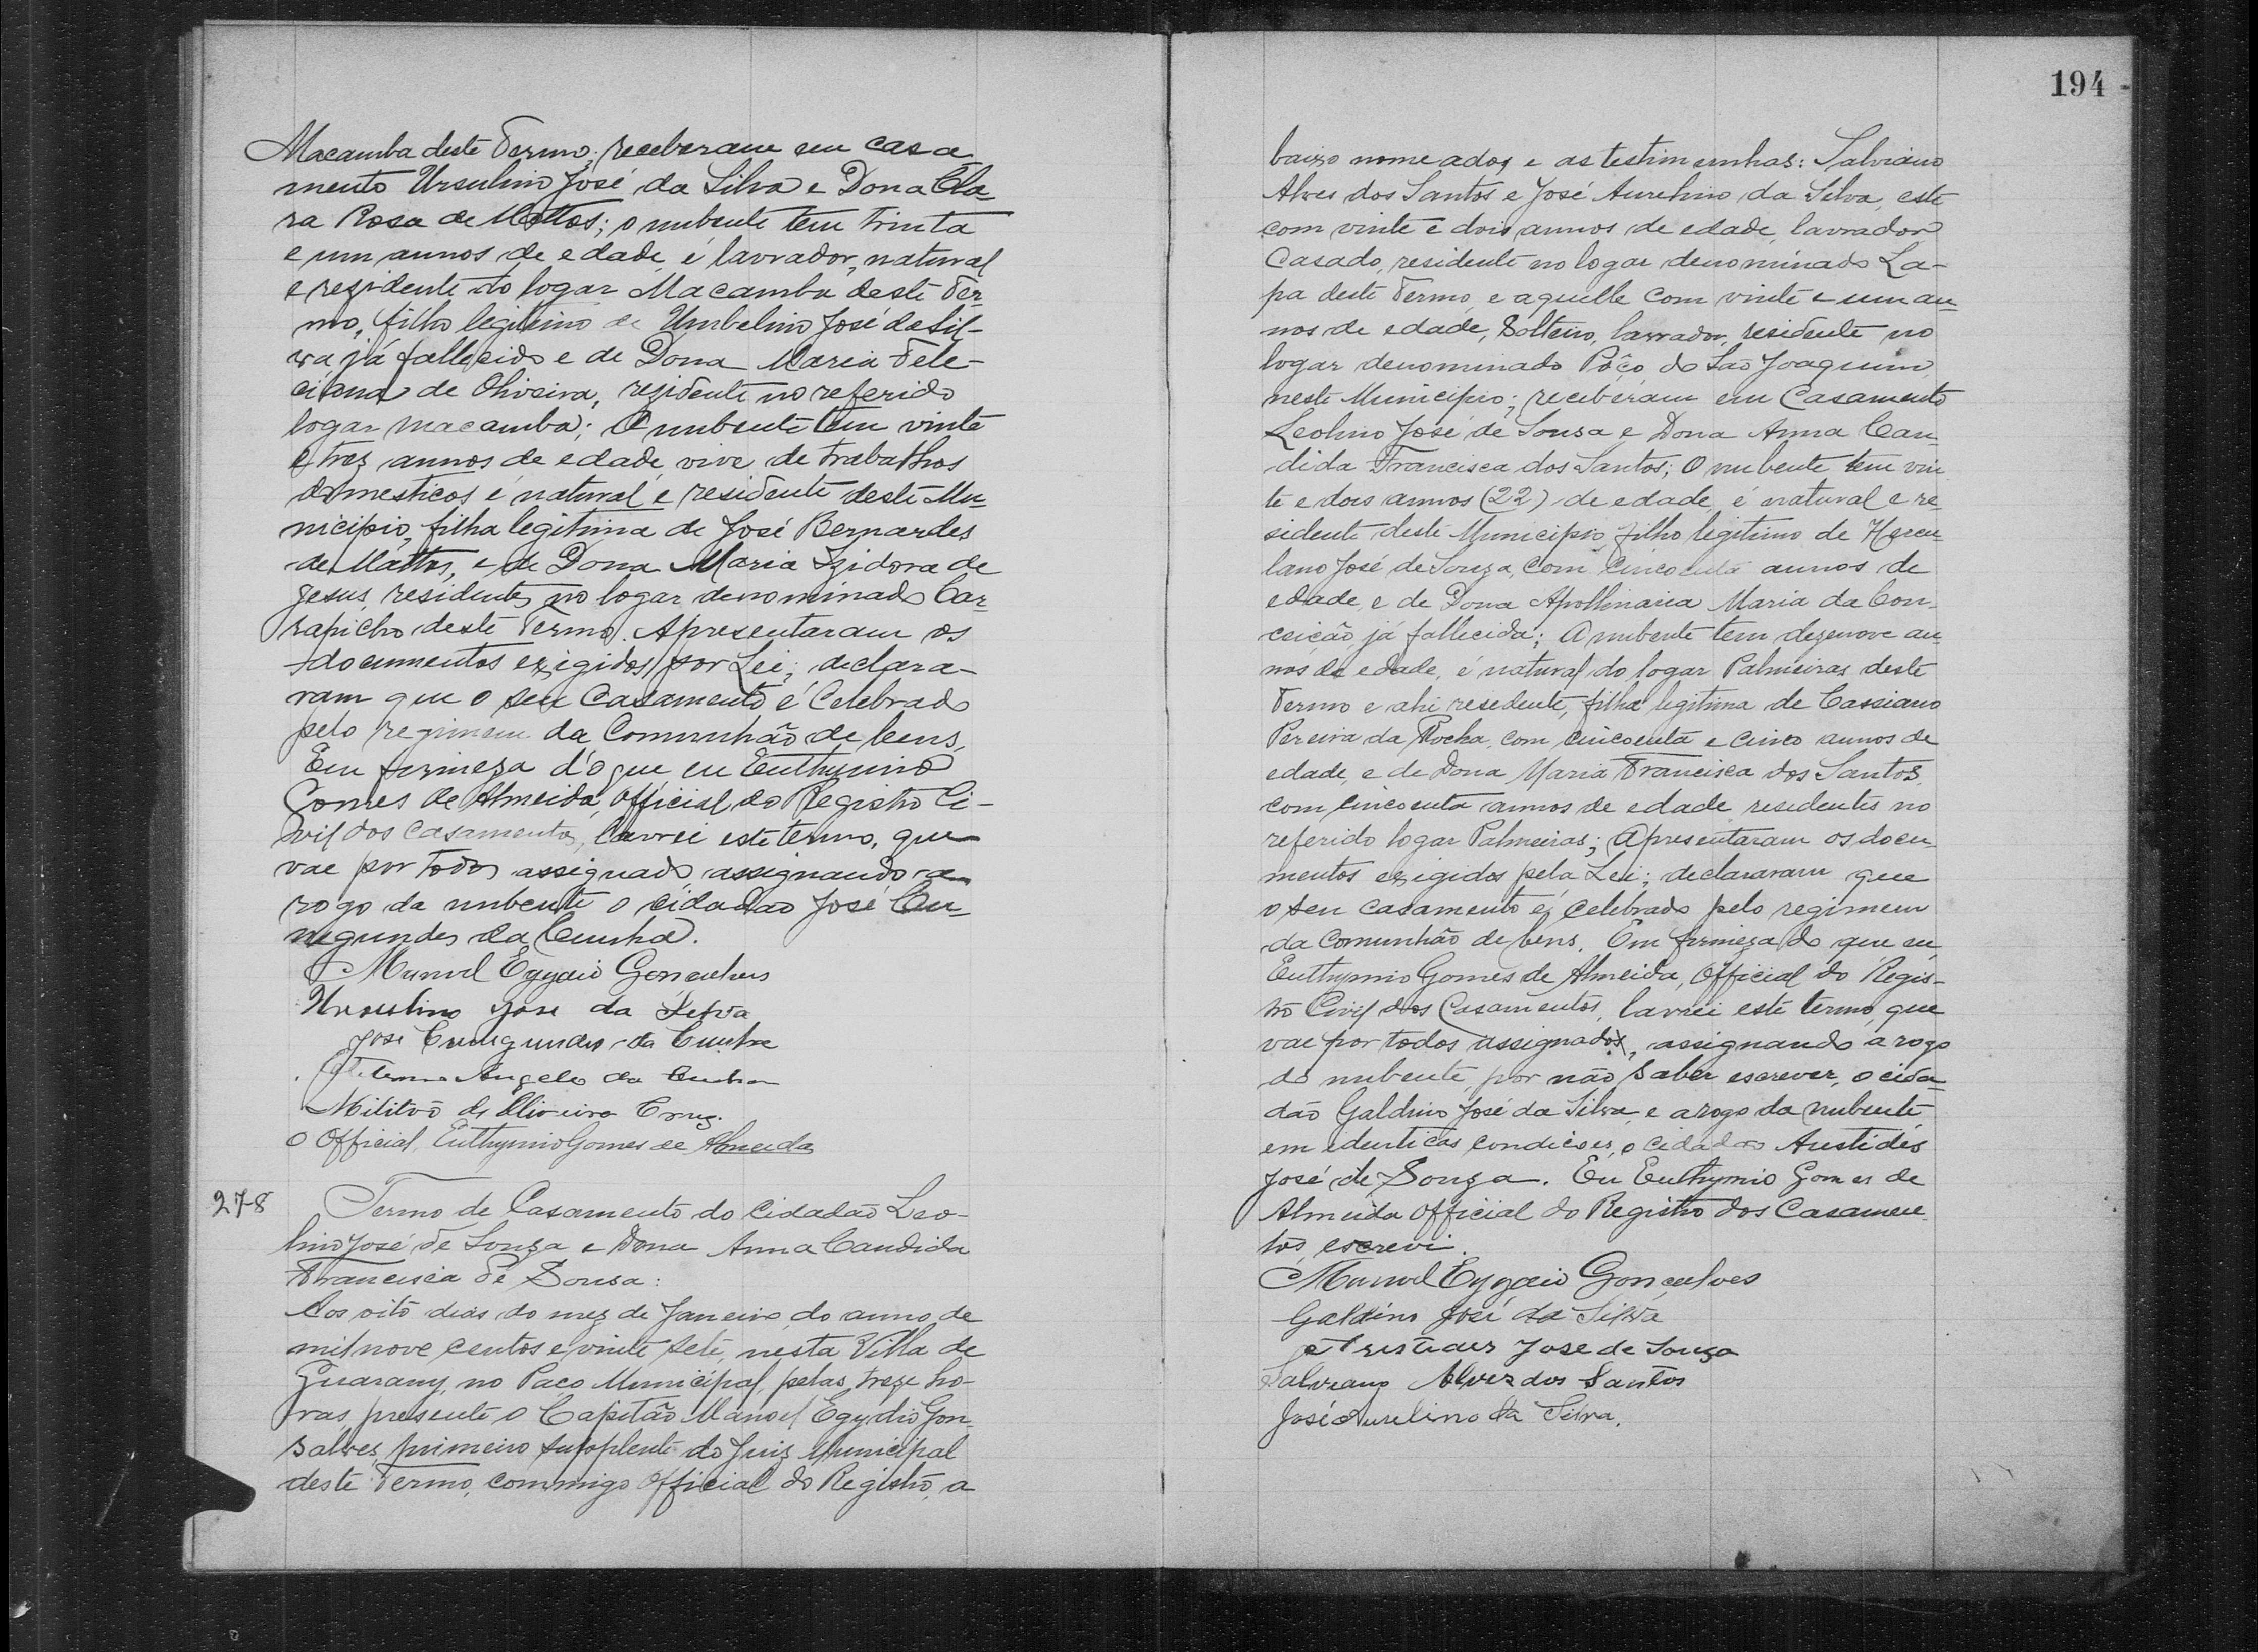 Macamba deste Termo; receberam em casa
mento Ursulino José da Silva e Dona Cla=
ra Rosa de Mattos; o nubente tem trinta
e um annos de edade, é lavrador, natural
e rezidente do logar Macamba deste Ter=
mo, filho legitimo de Umbelino José da Sil-
va já fallecido e de Dona Maria Feli-
ciana de Oliveira, rezidente no referido
logar macamba; A nubente tem vinte
e trez annos de edade, vive de trabalhos
domesticos é natural e residente deste Mu=
nicipio, filha legitima de José Bernardes
de Mattos, e de Dona Maria Izidora de
Jesus, residentes no logar denominado Car=
rapicho deste Termo. Apresentaram os
documentos exigidos por Lei; declara-
ram que o seu Casamento é Celebrado
pelo regimem da Communhão de bens,
Em firmeza d'o que eu Euthymio
Gomes de Almeida, official do Registro Ci-
vil dos Casamentos, lavrei este termo, que
vae por todos assignado, assignando a
rogo da nubente o cidadão José Cu=
negundes da Cunha.
Manoel Egydio Goncalves
Urculino Jose da Silva
Jose Cunegundes da Cunha
Angelo da Cunha
Militão de Oliveira Cruz.
O Official, Euthymio Gomes de Almeida
278 Termo de Casamento do Cidadão Leo-
lino José de Souza e Dona Anna Candida
Francisca de Sousa:
Aos oito dias do mez de Janeiro do anno de
mil nove centos e vinte sete, nesta Villa de
Guarany, no Paço Municipal, pelas treze ho-
ras, presente o Capitão Manoel Egydio Gon-
salves, primeiro supplente do Juiz Municipal
deste Termo, commigo Official do Registro, a
194
baixo nomeados e as testimunhas: Salviano
Alves dos Santos e José Aurelino da Silva, este
com vinte e dois annos de edade, lavrador
Casado, residente no logar denominado La-
pa deste Termo, e aquelle com vinte e um an=
nos de edade, Solteiro, lavrador, residente no
logar denominado Pôço do São Joaquim,
neste Municipio; receberam em Casamento
Leolino José de Sousa e Dona Anna Can=
dida Francisca dos Santos; O nubente tem vin
te e dois annos (22) de edade, é natural e re=
sidente deste Municipio, filho legitimo de Hercu=
lano José de Souza, com cincoenta annos de
edade, e de Dona Apollinaria Maria da Con-
ceição, já fallecida; A nubente tem dezenove an-
nos de edade, é natural do logar Palmeiras deste
Termo e ahi resedente, filha legitima de Cassiano
Pereira da Rocha, com cincoenta e cinco annos de
edade, e de Dona Maria Francisca dos Santos,
com cincoenta annos de edade residentes no
referido logar Palmeiras; Apresentaram os docu-
mentos exigidos pela Lei; declararam que
o seu casamento é celebrado pelo regimem
da Comunhão de bens. Em firmeza do que eu,
Euthymio Gomes de Almeida, Official do Regis-
tro Civil dos Casamentos, lavrei este termo, que
vae por todos assignados, assignando a rogo
do nubente, por não saber escrever, o cida=
dão Galdino José da Silva, e a rogo da nubente,
em identicas condicões, o cidadão Aristides
José de Souza. Eu Euthymio Gomes de
Almeida official do Registro dos Casamen-
tos, escrevi.
Manoel Egydio Gonçalves
Galdino José da Silva
Aristides Jose de Souza
Salviano Alves dos Santos
José Aurelino da Silva.